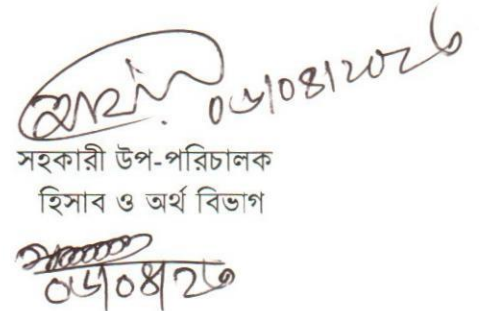 ০৬/০৪/২০২৩
সহকারী উপ-পরিচালক
হিসাব ও অর্থ বিভাগ
০৬/০৪/২৩